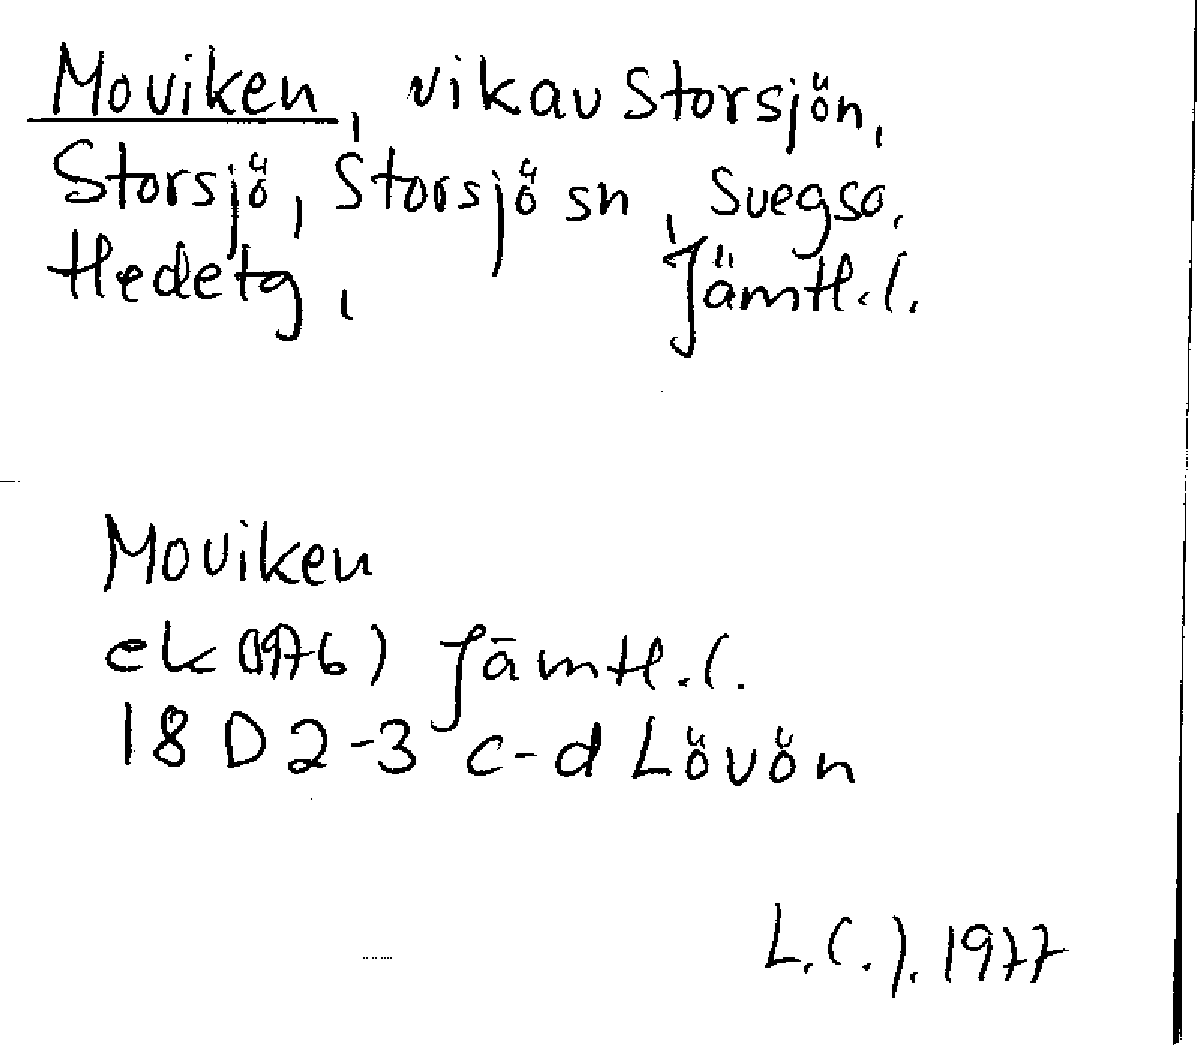 Moviken, vik av Storsjön,
Storsjö, Storsjö sn, Svegso,
Hedetg, Jämtl.l.
Moviken
ek (1976) Jämtl.l.
18 D 2-3 c-d Lövön
L.C.J. 1977